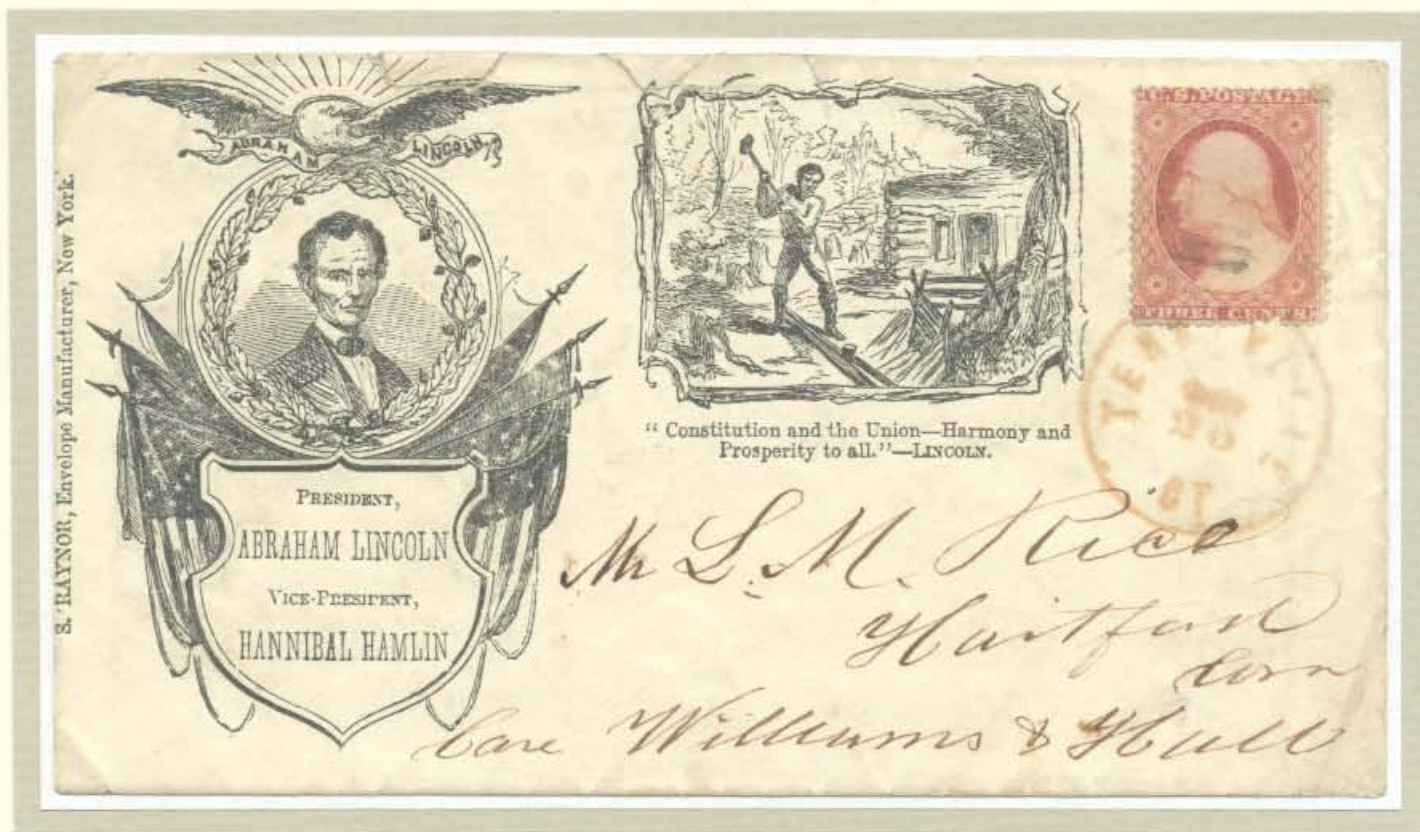 S. RAYNOR, Envelope Manufacturer, New York.
ABRAHAM LINCOLN
PRESIDENT,
ABRAHAM LINCOLN
VICE-PRESIDENT,
HANNIBAL HAMLIN
"Constitution and the Union—Harmony and
Prosperity to all."—LINCOLN.
U.S. POSTAGE
THREE CENTS
Mr L. M. Rice
Hartford
Conn
Care Williams & Hull